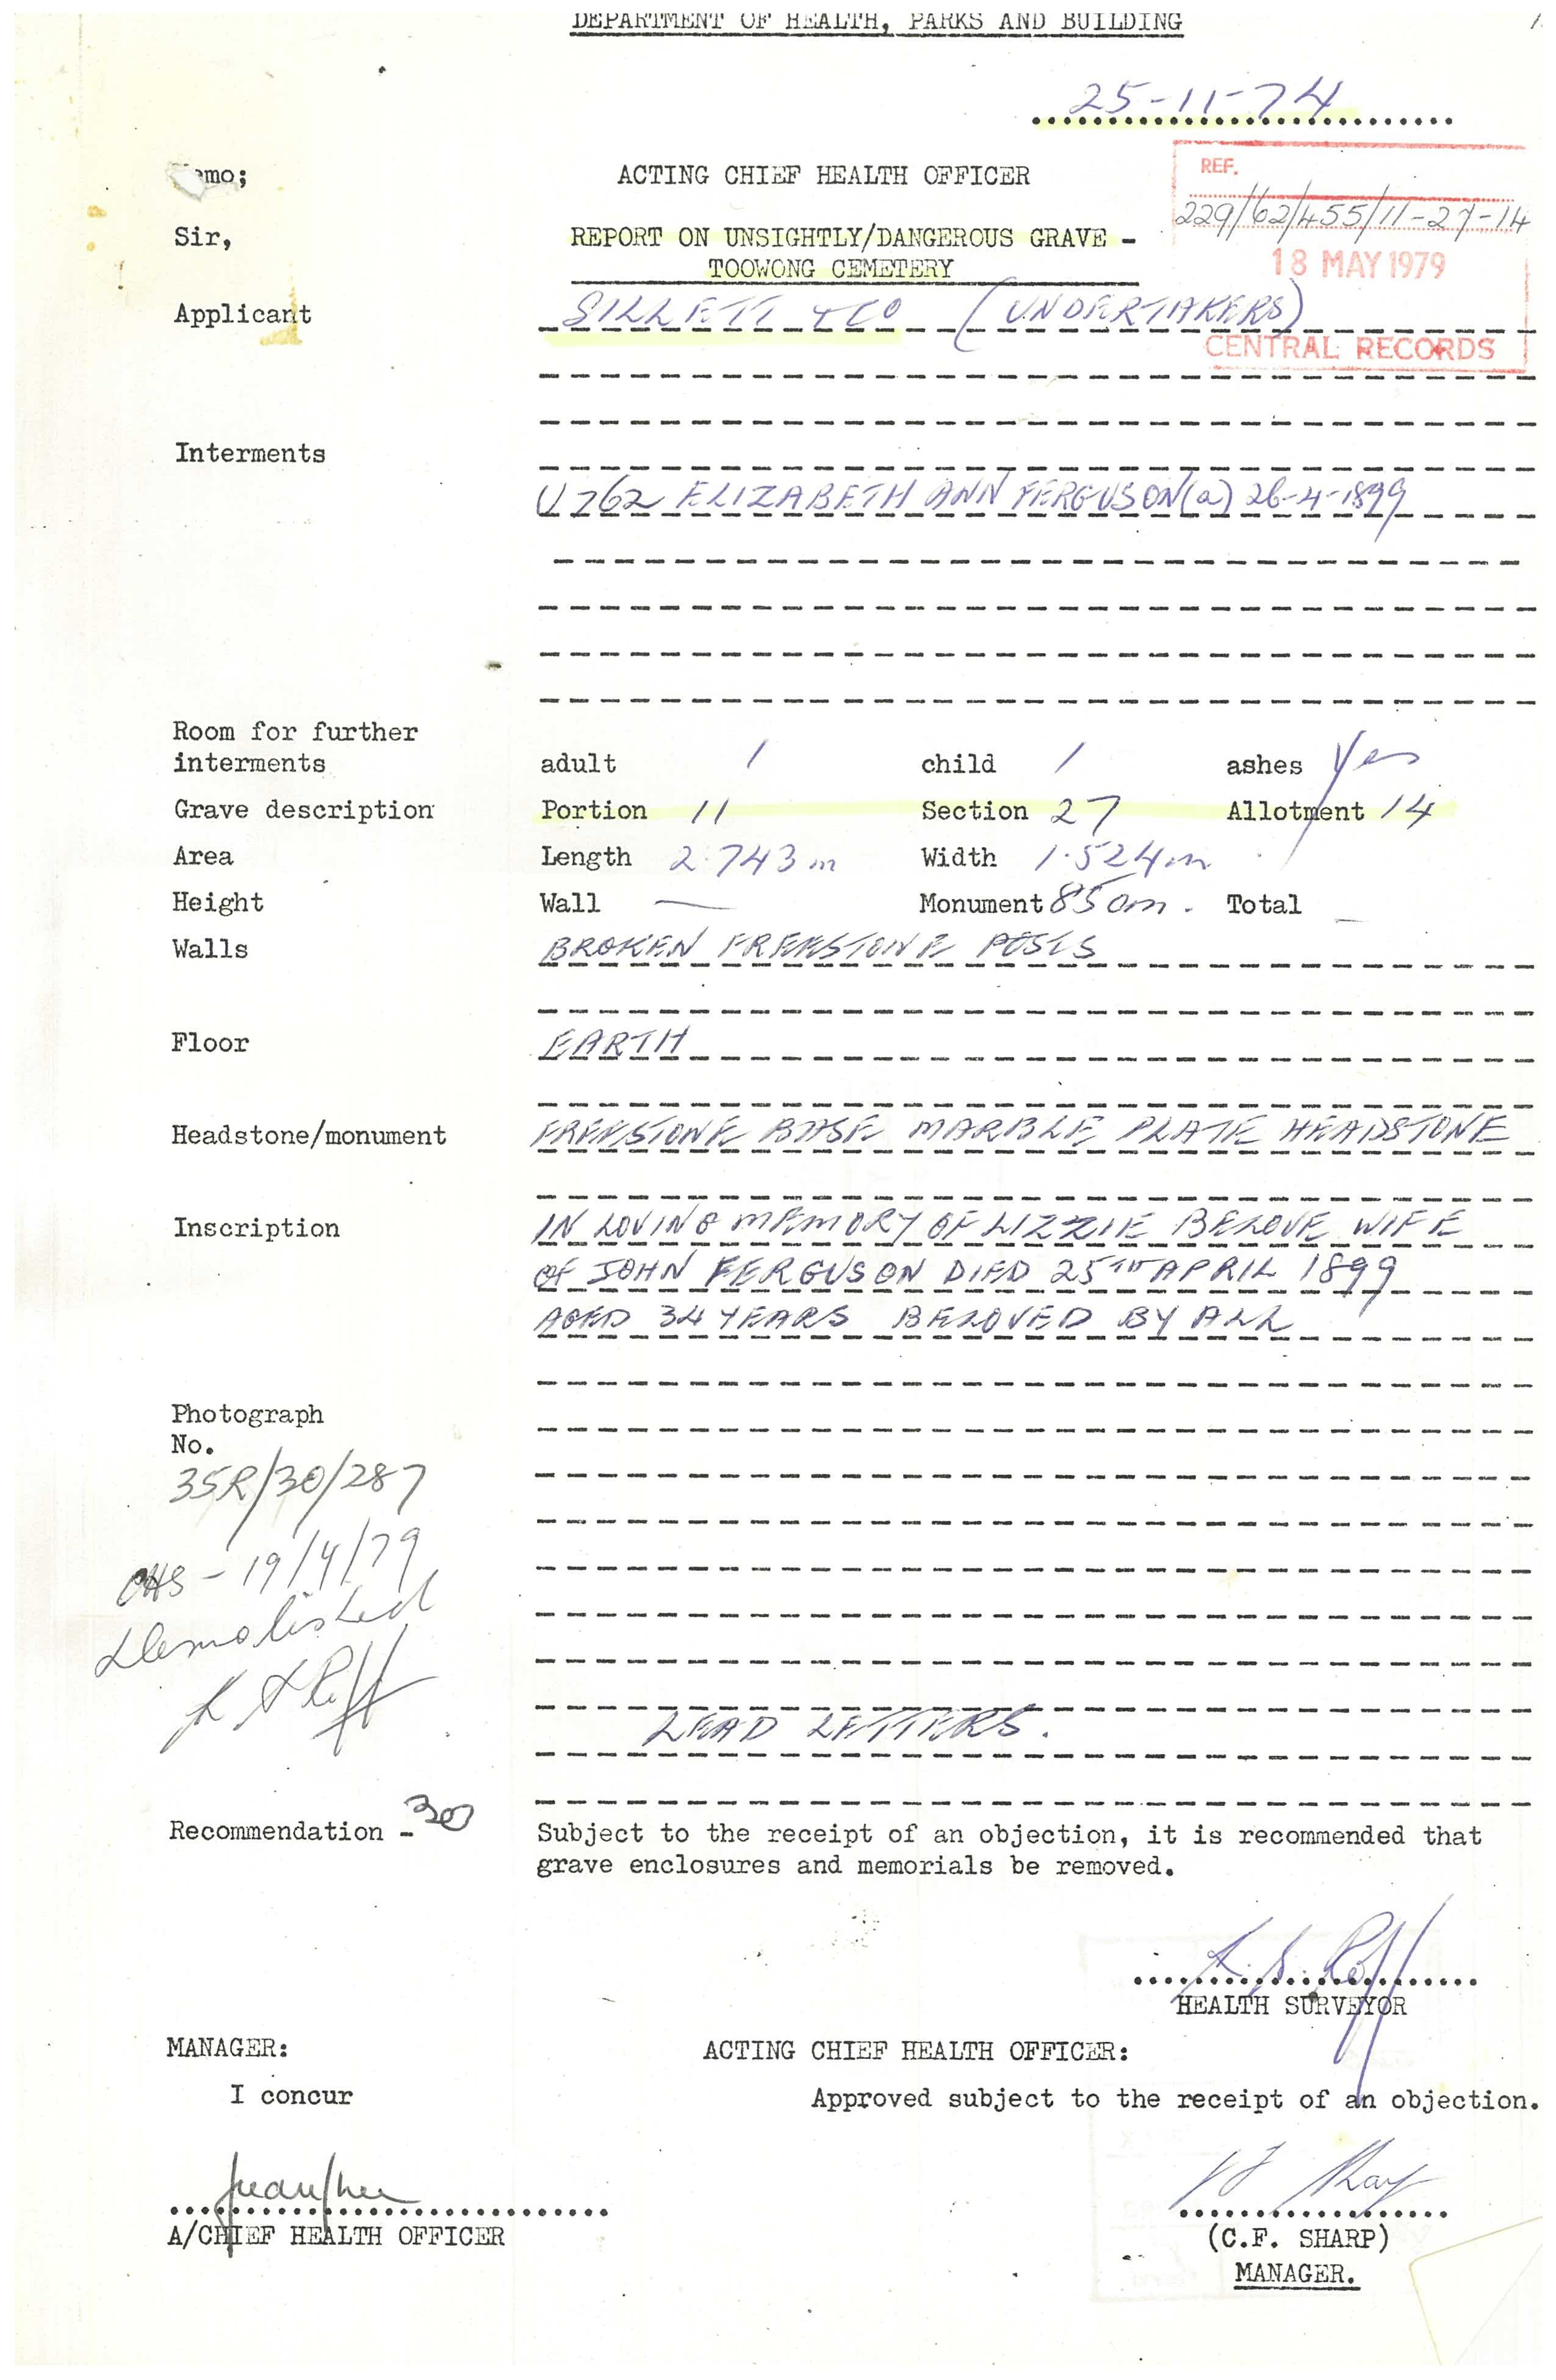 DEPARTMENT OF HEALTH, PARKS AND BUILDING
25-11-74
emo;
ACTING CHIEF HEALTH OFFICER
REF.
229/62/455/11-27-14
Sir,
REPORT ON UNSIGHTLY/DANGEROUS GRAVE -
TOOWONG CEMETERY
18 MAY 1979
Applicant
SILLETT & CO (UNDERTAKERS)
CENTRAL RECORDS
Interments
U762 ELIZABETH ANN FERGUSON (a) 26-4-1899
Room for further
interments adult 1 child 1 ashes Yes
Grave description Portion 11 Section 27 Allotment 14
Area Length 2.743m Width 1.524m
Height Wall — Monument 850m. Total —
Walls BROKEN FREESTONE POSTS
Floor EARTH
Headstone/monument FREESTONE BASE MARBLE PLATE HEADSTONE
Inscription IN LOVING MEMORY OF LIZZIE BELOVE WIFE
OF JOHN FERGUSON DIED 25TH APRIL 1899
AGED 34 YEARS BELOVED BY ALL
Photograph
No.
35R/30/287
CHS - 19/4/79
Demolished
LEAD LETTERS.
Recommendation - 307
Subject to the receipt of an objection, it is recommended that
grave enclosures and memorials be removed.
HEALTH SURVEYOR
MANAGER: ACTING CHIEF HEALTH OFFICER:
I concur Approved subject to the receipt of an objection.
A/CHIEF HEALTH OFFICER (C.F. SHARP)
MANAGER.